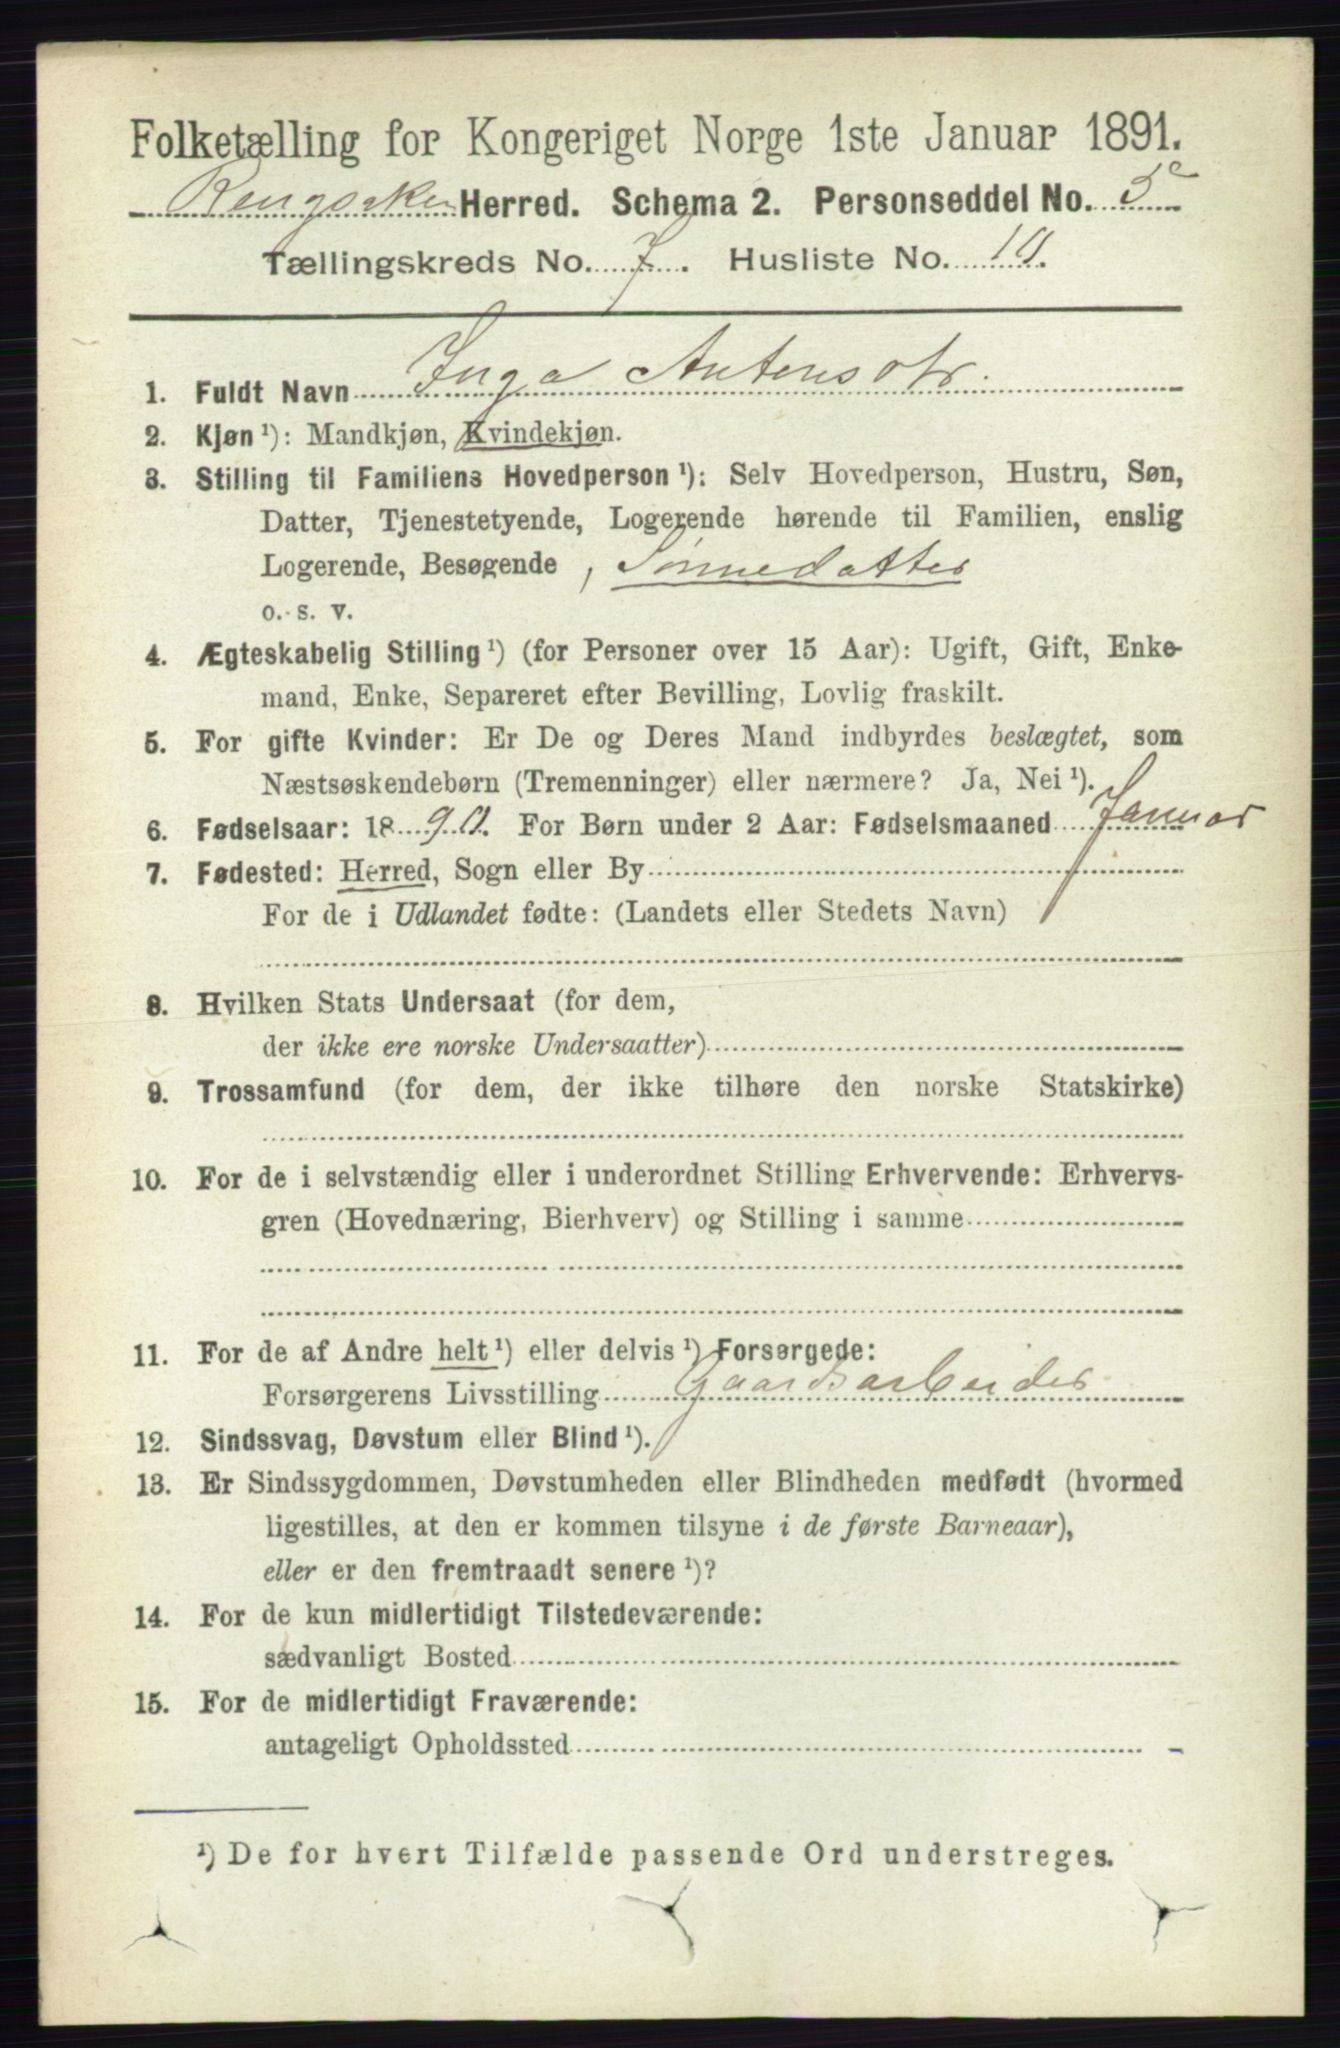 Folketælling for Kongeriget Norge 1ste Januar 1891.
Ringsaker Herred. Schema 2. Personseddel No. 5
Tællingskreds No. 7. Husliste No. 10.
1. Fuldt Navn Inga Antonsdtr.
2. Kjøn ¹): Mandkjøn, Kvindekjøn.
3. Stilling til Familiens Hovedperson ¹): Selv Hovedperson, Hustru, Søn,
Datter, Tjenestetyende, Logerende hørende til Familien, enslig
Logerende, Besøgende , Sønnedatter
o. s. v.
4. Ægteskabelig Stilling ¹) (for Personer over 15 Aar): Ugift, Gift, Enke-
mand, Enke, Separeret efter Bevilling, Lovlig fraskilt.
5. For gifte Kvinder: Er De og Deres Mand indbyrdes beslægtet, som
Næstsøskendebørn (Tremenninger) eller nærmere? Ja, Nei ¹).
6. Fødselsaar: 1890. For Børn under 2 Aar: Fødselsmaaned Januar
7. Fødested: Herred, Sogn eller By
For de i Udlandet fødte: (Landets eller Stedets Navn)
8. Hvilken Stats Undersaat (for dem,
der ikke ere norske Undersaatter)
9. Trossamfund (for dem, der ikke tilhøre den norske Statskirke)
10. For de i selvstændig eller i underordnet Stilling Erhvervende: Erhvervs-
gren (Hovednæring, Bierhverv) og Stilling i samme
11. For de af Andre helt ¹) eller delvis ¹) Forsørgede:
Forsørgerens Livsstilling Gaardsarbeider
12. Sindssvag, Døvstum eller Blind ¹).
13. Er Sindssygdommen, Døvstumheden eller Blindheden medfødt (hvormed
ligestilles, at den er kommen tilsyne i de første Barneaar),
eller er den fremtraadt senere ¹)?
14. For de kun midlertidigt Tilstedeværende:
sædvanligt Bosted
15. For de midlertidigt Fraværende:
antageligt Opholdssted
¹) De for hvert Tilfælde passende Ord understreges.